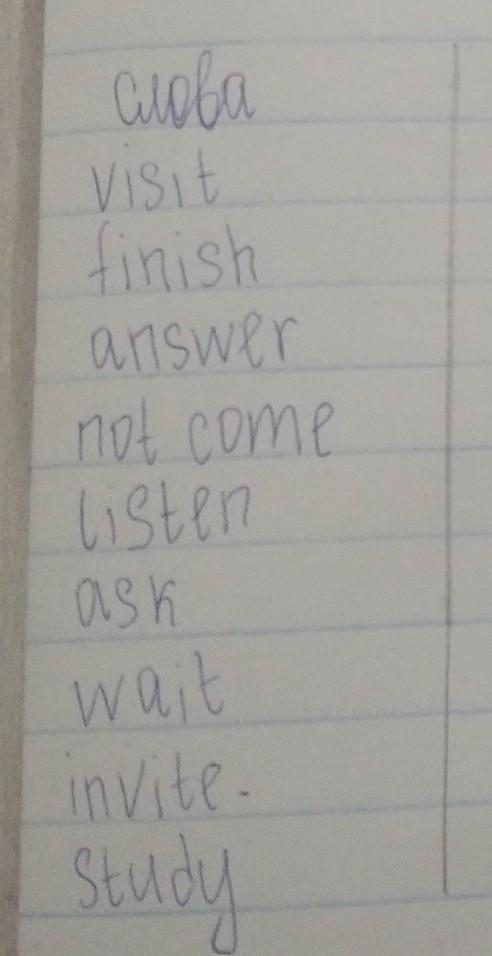 слова
visit
finish
answer
not come
listen
ask
wait
invite.
study